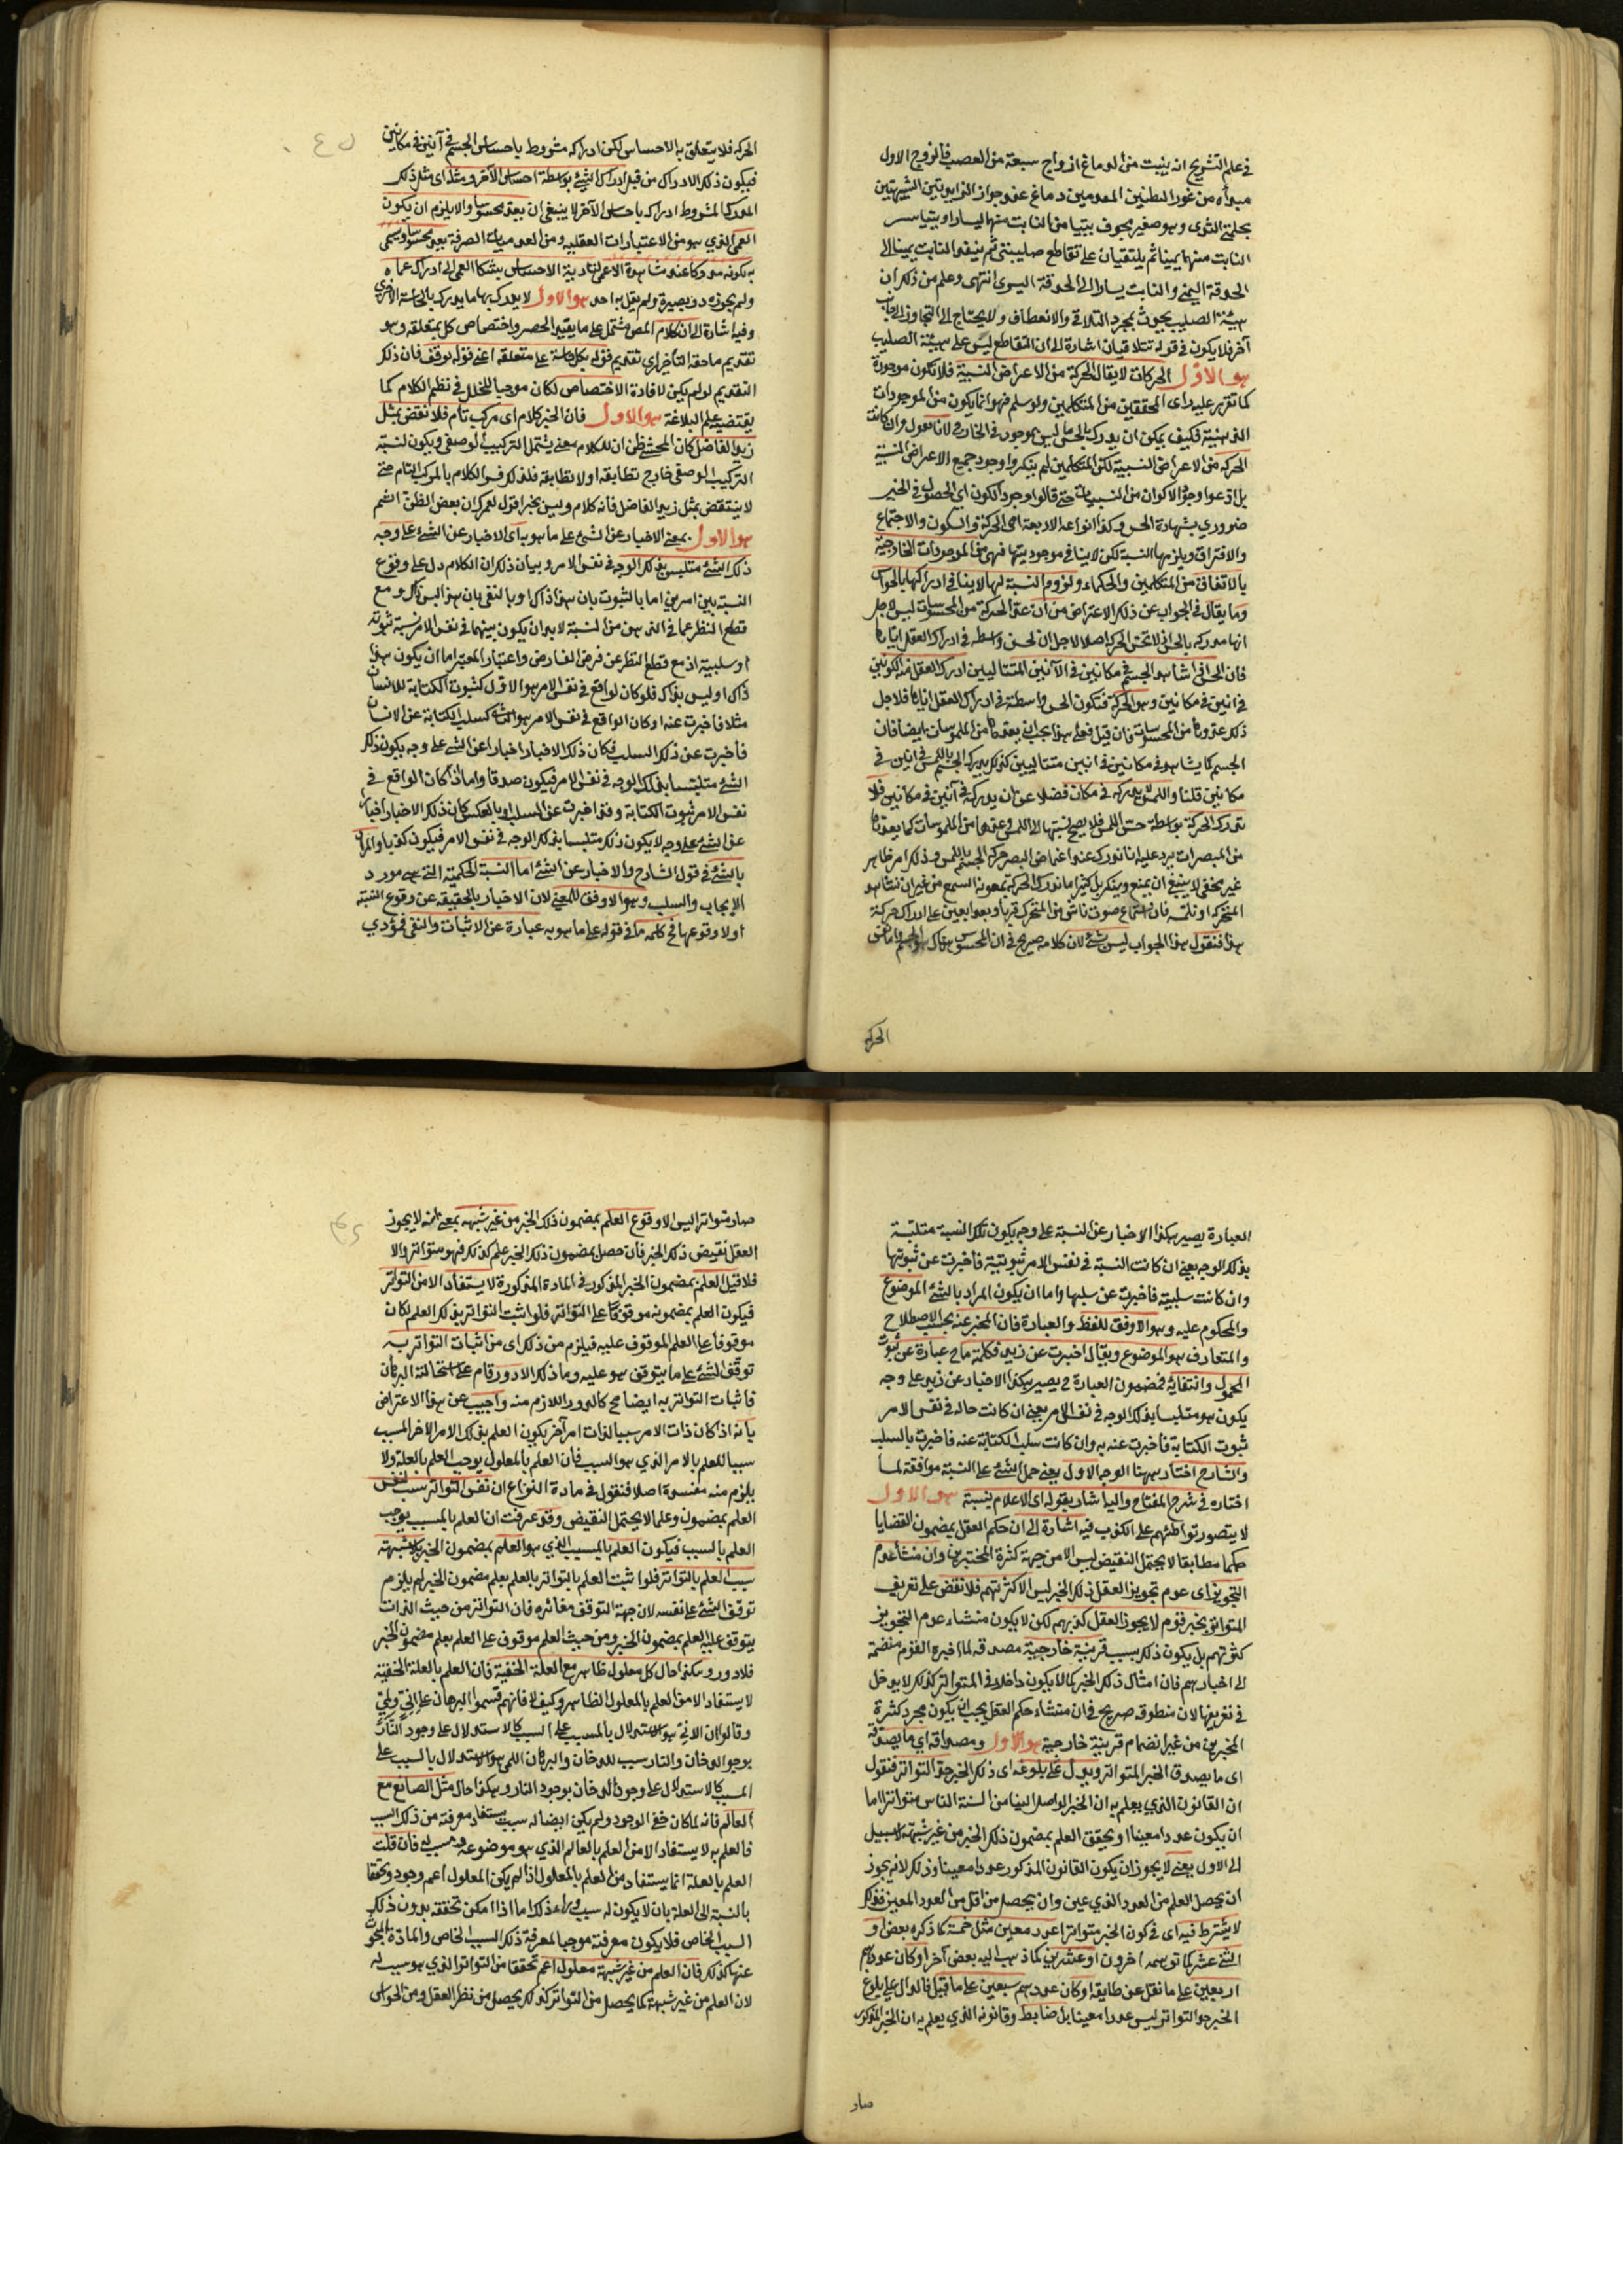 في علم التشريح انه ينبت من الدماغ ازواج سبعة من العصب فالزوج الاول
مبدأه من غور البطنين المقدمين من دماغ عند جواز الزايدتين الشبيهتين
بحلمتي الثدي وهو صغير مجوف يتيامن النابت منهما يسارا ويتياسر
النابت منهما يمينا ثم يلتقيان على تقاطع صليبي ثم ينفذ النابت يمينا الى
الحدقة اليمنى والنابت يسارا الى الحدقة اليسرى انتهى وعلم من ذلك ان
هيئة الصليب يحدث بمجرد التلاقي والانعطاف ولا يحتاج الى التجاوز الى جانب
آخر فلا يكون في قوله تتلاقيان اشارة الى ان التقاطع ليس على هيئة الصليب
هو الاول الحركات لا يقال الحركة من الاعراض النسبية فلا تكون موجودة
كما تقرر عليه راى المحققين من المتكلمين ولو سلم فهو انما يكون من الموجودات
الذهنية فكيف يمكن ان يدرك بالحس ما ليس بموجود في الخارج لانا نقول وان كانت
الحركة من الاعراض النسبية لكن المتكلمين لم ينكروا وجود جميع الاعراض النسبية
بل ادعوا وجود الاكوان من النسبيات حتى قالوا وجود الكون اى الحصول في الحيز
ضروري بشهادة الحس وكذا انواعه الاربعة اعنى الحركة والسكون والاجتماع
والافتراق ويلزمها النسبة لكن لا ينافي موجوديتها فهي من الموجودات الخارجية
بالاتفاق من المتكلمين والحكماء ولزوم النسبة لها لا ينافي ادراكها بالحواس
وما يقال في الجواب عن ذلك الاعتراض من ان عد الحركة من المحسوسات ليس لاجل
انها مدركة بالحس اذ لا تحس الحركة اصلا بل لاجل ان للحس واسطة في ادراك العقل اياها
فان الحس اذا شاهد الجسم في مكانين في الآنين المتتاليين ادرك العقل منه الكونين
في آنين في مكانين وهو الحركة فتكون الحس واسطة في ادراك العقل اياها فلاجل
ذلك عدوها من المحسوسات فان قيل فعلى هذا يجب ان يعدها من الملموسات ايضا فان
الجسم كما يشاهد في مكانين في آنين متتاليين كذلك يدرك الجسم باللمس في آنين في
مكانين قلنا واللمس لا يدركه في مكان فضلا عن ان يدركه في آنين في مكانين فلا
تدرك الحركة بواسطة حس اللمس فلا يصح نسبتها الى اللمس وعدها من الملموسات كما يعدها
من المبصرات يرد عليه انا ندرك عند اغماض البصر حركة الجسم باللمس وذلك امر ظاهر
غير مخفي لا ينبغي ان يمنع وينكر بل كثيرا ما ندرك الحركة بمعونة السمع من غير ان نشاهد
المتحرك او نلمسه فان استماع صوت ناش من المتحرك قربا وبعدا يعين على ادراك حركته
هذا فنقول هذا الجواب ليس بشئ لان كلامه صريح في ان المحسوس هناك هو الجسم واما نفس
الحركة
الحركة فلا يتعلق به الاحساس لكن ادراكه مشروط باحساس الجسم في آنين في مكانين
فيكون ذلك الادراك من قبيل ادراك الشئ بواسطة احساس الآخر ومثله اى مثل ذلك
المدرك المشروط ادراكه باحساس الآخر لا ينبغي ان يعد محسوسا والا يلزم ان يكون
العمى الذي هو من الاعتبارات العقلية ومن العدميات الصرفة يعد محسوسا ويسمى
به لكونه مدركا عند مشاهدة الاعمى لتأدية الاحساس بشكل العمى الى ادراك عماه
ولم يجوزه ذو بصيرة ولم يقل به احد هو الاول لا يدرك بها ما يدرك بالحاسة الاخرى
وفيه اشارة الى ان كلام المص مشتمل على ما يفيد الحصر واختصاص كل بمتعلقه وهو
تقديم ما حقه التأخير اى تقديم قوله بكل حاسة على متعلقه اعنى قوله يوقف فان ذلك
التقديم لو لم يكن لافادة الاختصاص لكان موجبا للخلل في نظم الكلام كما
يقتضيه علم البلاغة هو الاول فان الخبر كلام اى مركب تام فلا نقض بمثل
زيد الفاضل كان المحشى ظن ان للكلام معنى يشتمل التركيب الوصفي ويكون لنسبة
التركيب الوصفي خارج تطابقه او لا تطابقه فلذلك فسر الكلام بالمركب التام حتى
لا ينتقض بمثل زيد الفاضل فانه كلام وليس بخبر اقول لعمرى ان بعض الظن اثم
هو الاول بمعنى الاخبار عن الشئ على ما هو به اى الاخبار عن الشئ على وجه
ذلك الشئ متلبس بذلك الوجه في نفس الامر وبيان ذلك ان الكلام دل على وقوع
النسبة بين امرين اما بالثبوت بان هذا ذاك او بالنفي بان هذا ليس ذاك ومع
قطع النظر عما في الذهن من النسبة لا بد ان يكون بينهما في نفس الامر نسبة ثبوتية
او سلبية اذ مع قطع النظر عن فرض الفارض واعتبار المعتبر اما ان يكون هذا
ذاك او ليس بذاك فلو كان الواقع في نفس الامر هو الاول كثبوت الكتابة للانسان
مثلا فاخبرت عنه او كان الواقع في نفس الامر هو الثاني كسلب الكتابة عن الانسان
فاخبرت عن ذلك السلب فكان ذلك الاخبار اخبارا عن الشئ على وجه يكون ذلك
الشئ متلبسا بذلك الوجه في نفس الامر فيكون صدقا واما اذا كان الواقع في
نفس الامر ثبوت الكتابة وقد اخبرت عن السلب او بالعكس كان ذلك الاخبار اخبارا
عن الشئ على وجه لا يكون ذلك متلبسا بذلك الوجه في نفس الامر فيكون كذبا والمراد
بالشئ في قول الشارح والاخبار عن الشئ اما النسبة الحكمية التي هي مورد
الايجاب والسلب وهو الاوفق للمعنى لان الاخبار بالحقيقة عن وقوع النسبة
او لا وقوعها فح كلمة ما في قوله على ما هو به عبارة عن الاثبات والنفي فمؤدي
العبارة يصير هكذا الاخبار عن النسبة على وجه يكون تلك النسبة متلبسة
بذلك الوجه يعني ان كانت النسبة في نفس الامر ثبوتية فاخبرت عن ثبوتها
وان كانت سلبية فاخبرت عن سلبها واما ان يكون المراد بالشئ الموضوع
والمحكوم عليه وهو الاوفق للفظ والعبارة فان المخبر عنه بحسب الاصطلاح
والمتعارف هو الموضوع ويقال اخبرت عن زيد فكلمة ما ح عبارة عن ثبوت
المحمول وانتفائه فمضمون العبارة ح يصير هكذا الاخبار عن زيد على وجه
يكون هو متلبسا بذلك الوجه في نفس الامر يعني ان كانت حاله في نفس الامر
ثبوت الكتابة فاخبرت عنه به وان كانت سلب الكتابة عنه فاخبرت بالسلب
والشارح اختار ههنا الوجه الاول يعني حمل الشئ على النسبة موافقة لما
اختاره في شرح المفتاح واليه اشار بقوله اى الاعلام بنسبة هو الاول
لا يتصور تواطئهم على الكذب فيه اشارة الى ان حكم العقل بمضمون القضايا
حكما مطابقا لا يحتمل النقيض ليس الا من جهة كثرة المخبرين وان منشأ عدم
التجويز اى عدم تجويز العقل ذلك الخبر ليس الا كثرتهم فلا نقض على تعريف
المتواتر بخبر قوم لا يجوز العقل كذبهم لكن لا يكون منشاء عدم التجويز
كثرتهم بل يكون ذلك بسبب قرينة خارجية مصدقة لما اخبره القوم منضمة
الى اخبارهم فان امثال ذلك الخبر كما لا يكون داخلا في المتواتر كذلك لا يدخل
في تعريفها لان منطوقه صريح في ان منشاء حكم العقل يجب ان يكون مجرد كثرة
المخبرين من غير انضمام قرينة خارجية هو الاول ومصداقه اى ما يصدقه
اى ما يصدق الخبر المتواتر ويدل على بلوغه اى ذلك الخبر حد التواتر فنقول
ان القانون الذي يعلم به ان الخبر الواصل الينا من السنة الناس متواترا اما
ان يكون عددا معينا او يحقق العلم بمضمون ذلك الخبر من غير شبهة لا سبيل
الى الاول يعنى لا يجوز ان يكون القانون المذكور عددا معينا وذلك لانه يجوز
ان يحصل العلم من العدد الذي عين وان يحصل من اقل من العدد المعين فذلك
لا يشترط فيه اى في كون الخبر متواترا عدد معين مثل خمسة كما ذكره بعض او
اثنى عشر كما توهمه آخرون او عشرين كما ذهب اليه بعض آخر او كان عددهم
اربعين على ما نقل عن طايفة او كان عددهم سبعين على ما قيل فالدال على بلوغ
الخبر حد التواتر ليس عددا معينا بل ضابط وقانونه الذي يعلم به ان الخبر المذكور
صار
صار متواترا ليس الا وقوع العلم بمضمون ذلك الخبر من غير شبهة بمعنى انه لا يجوز
العقل نقيض ذلك الخبر فان حصل بمضمون ذلك الخبر علم كذلك فهو متواتر والا
فلا قيل العلم بمضمون الخبر المذكور في المادة المذكورة لا يستفاد الا من التواتر
فيكون العلم بمضمونه موقوفا على التواتر فلو اثبت التواتر بذلك العلم لكان
موقوفا على العلم الموقوف عليه فيلزم من ذلك اى من اثبات التواتر به
توقف الشئ على ما يتوقف هو عليه وما ذلك الا دور قام على استحالته البرهان
فاثبات التواتر به ايضا مح كالدور اللازم منه واجيب عن هذا الاعتراض
بانه اذا كان ذات الامر سببا لذات امر آخر يكون العلم بذلك الامر الاخر المسبب
سببا للعلم بالامر الذي هو السبب فان العلم بالمعلول يوجب العلم بالعلة ولا
يلزم منه مفسدة اصلا فنقول في مادة النزاع ان نفس التواتر سبب لنفس
العلم بمضمون وعلما لا يحتمل النقيض وقد عرفت ان العلم بالمسبب يوجب
العلم بالسبب فيكون العلم بالمسبب الذي هو العلم بمضمون الخبر بلا شبهة
سبب العلم بالتواتر فلو اثبت العلم بالتواتر بالعلم بعلم مضمون الخبر لم يلزم
توقف الشئ على نفسه لان جهة التوقف مغائره فان التواتر من حيث الذات
يتوقف عليه العلم بمضمون الخبر ومن حيث العلم موقوف على العلم بعلم مضمون الخبر
فلا دور وهكذا حال كل معلول ظاهر مع العلة الخفية فان العلم بالعلة الخفية
لا يستفاد الا من العلم بالمعلول الظاهر وكيف لا فانهم قسموا البرهان على إنى ولمى
وقالوا ان الانى هو الاستدلال بالمسبب على السبب كالاستدلال على وجود النار
بوجود الدخان والنار سبب للدخان والبرهان اللمى هو الاستدلال بالسبب على
المسبب كالاستدلال على وجود الدخان بوجود النار وهكذا حال مثل الصانع مع
العالم فانه لما كان خفي الوجود ولم يكن ايضا له سبب يستفاد معرفته من ذلك السبب
فالعلم به لا يستفاد الا من العلم بالعالم الذي هو موضوعه ومسببه فان قلت
العلم بالعلة انما يستفاد من العلم بالمعلول اذا لم يكن المعلول اعم وجودا وتحققا
بالنسبة الى العلة بان لا يكون له سبب وراء ذلك اما اذا امكن تحققه بدون ذلك
السبب الخاص فلا يكون معرفته موجبا لمعرفة ذلك السبب الخاص والمادة المبحوث
عنها كذلك فان العلم من غير شبهة معلول اعم تحققا من التواتر الذي هو سبب له
لان العلم من غير شبهة كما يحصل من التواتر كذلك يحصل من نظر العقل ومن الحواس